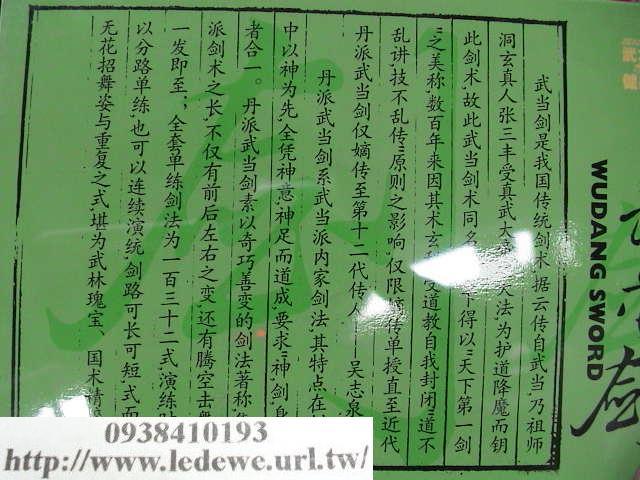 武当剑是我国传统剑术据云传自武当,乃祖师
洞玄真人张三丰受真武大 大法为护道降魔而钥
此剑术,故此武当剑术同名 下得以"天下第一剑
"之美称,数百年来因其术玄 受道教自我封闭"道不
乱讲,技不乱传"原则之影响,仅限嫡传单授直至近代
丹派武当剑仅嫡传至第十二代传人 吴志泉
丹派武当剑系武当派内家剑法,其特点在
中以神为先,全凭神意神足而道成,要求"神,剑,身
者合一。丹派武当剑素以奇巧善变的剑法著称,
派剑术之长,不仅有前后左右之变,还有腾空击
一发即至;全套单练剑法为一百三十二式,演练
以分路单练,也可以连续演练,剑路可长可短,式
无花招舞姿与重复之式堪为武林瑰宝、国术
WUDANG SWORD
0938410193
http://www.ledewe.url.tw/